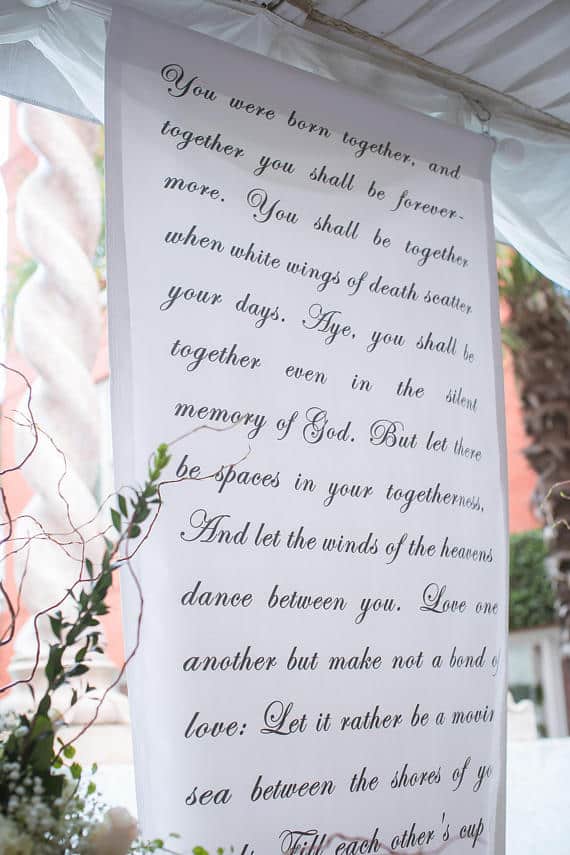 You were born together, and
together you shall be forever-
more. You shall be together
when white wings of death scatter
your days. Aye, you shall be
together even in the silent
memory of God. But let there
be spaces in your togetherness,
And let the winds of the heavens
dance between you. Love one
another but make not a bond
love: Let it rather be a movin
sea between the shores of yo
Fill each other's cup